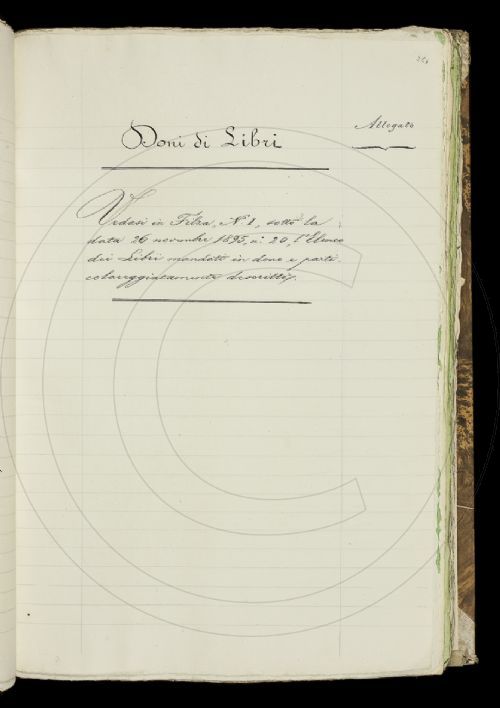 Allegato
Doni di Libri
Vedasi in Filza, N. 1, sotto la
data 26 novembre 1895, n. 20, l'Elenco
dei Libri mandati in dono e parti-
coloreggiatamente descritti.